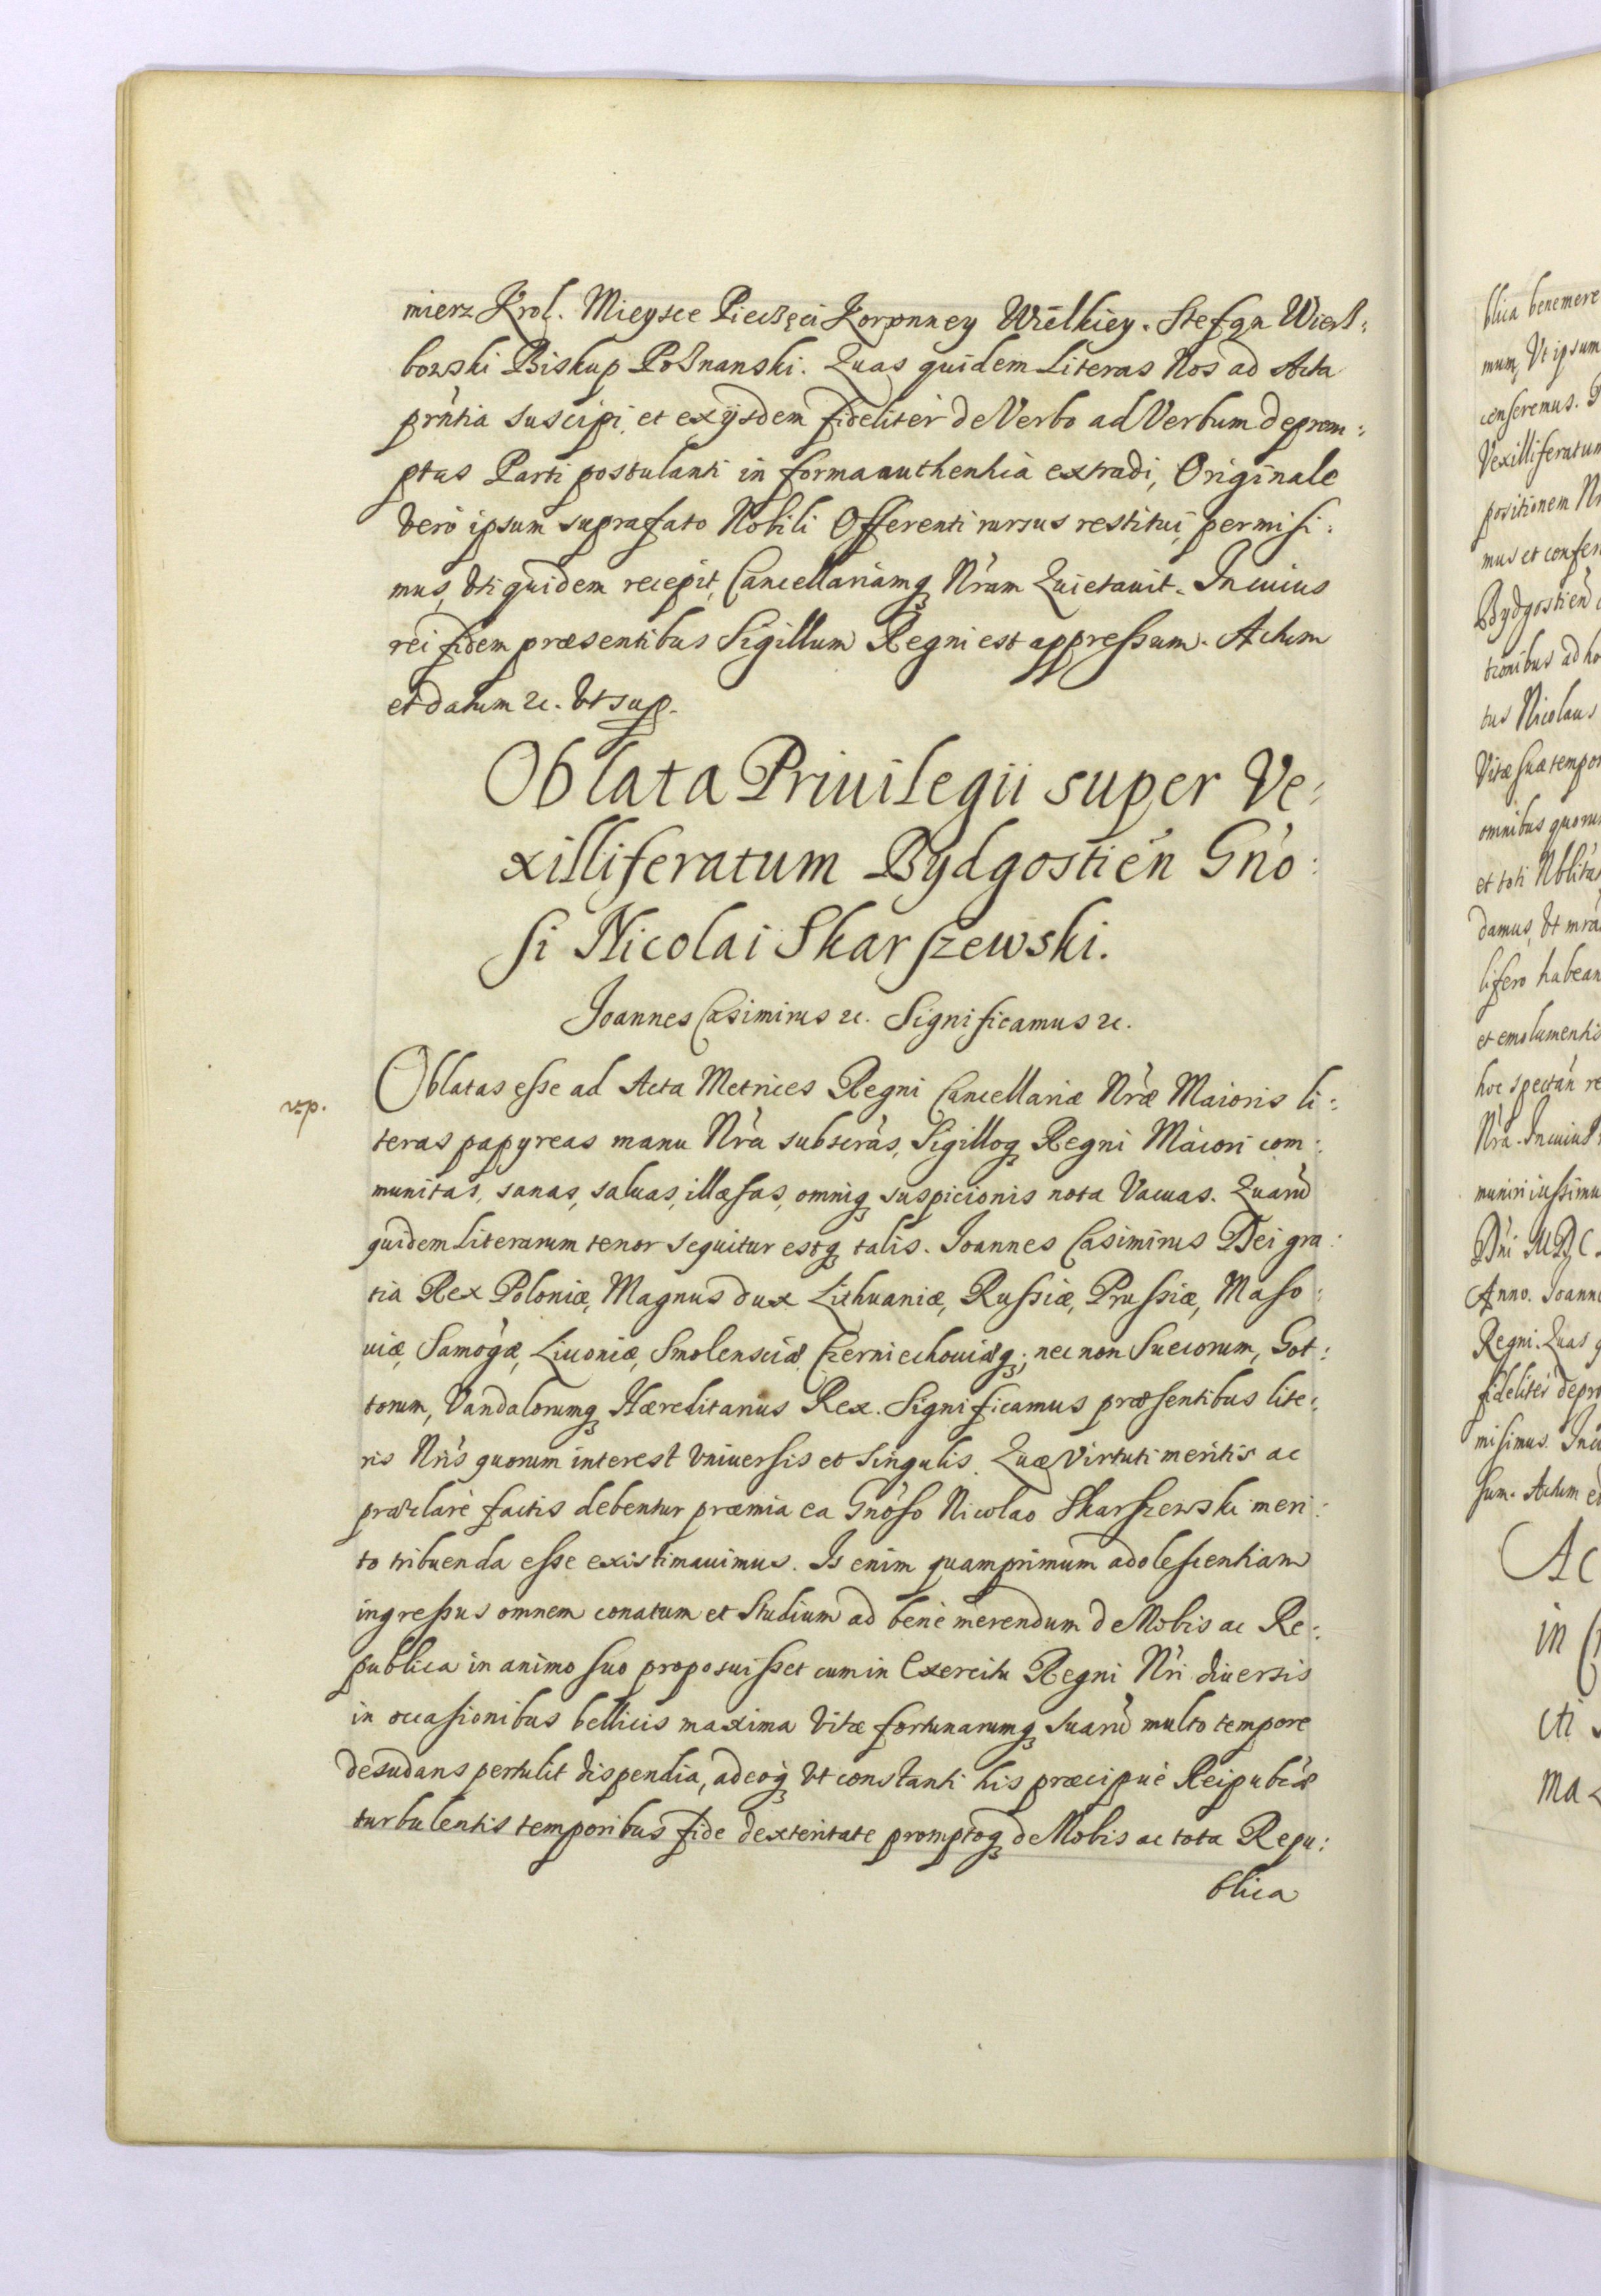 mierz Krol. Mieysce Pieczęci Koronney Wielkiey. Stefan Wierz:
bowski Biskup Poznanski. Quas quidem Literas Nos ad Acta
prńtia suscipi, et exijsdem fideliter de Verbo ad Verbum deprom:
ptas Parti postulanti in forma authentica extradi, Originale
vero ipsum suprafato Nobili Offerenti rursus restitui, permisi:
mus, Uti quidem recepit, Cancellariamq́ Nŕam Quietauit. In cuius
rei fidem præsentibus Sigillum Regni est appressum. Actum
et datum &c. Ut sup.
Oblata Priuilegii super Ve:
xilliferatum Bydgostień Gńo:
si Nicolai Skarszewski.
Joannes Casimirus &c. Significamus &c.
Oblatas esse ad Acta Metrices Regni Cancellariæ Nŕæ Maioris li:
teras papyreas manu Nŕa subscŕas, Sigilloq́ Regni Maiori com:
munitas, sanas, saluas, illæsas, omniq́ suspicionis nota Vacuas. Quarū
quidem Literarum tenor sequitur estq́ talis. Joannes Casimirus Dei gra:
tia Rex Poloniæ, Magnus dux Lithuaniæ, Russiæ, Prussiæ, Maso:
uiæ, Samoǵæ, Liuoniæ, Smolensciæ, Czerniechouiæq́; nec non Suecorum, Got:
torum, Vandalorumq́ Hæreditarius Rex. Significamus præsentibus lite:
ris Nŕis quorum interest Vniuersis et Singulis. Quæ Virtuti meritis ac
præclare factis debentur præmia ea Gńoso Nicolao Skarszewski meri:
to tribuenda esse existimauimus. Is enim quamprimum adolescentiam
ingressus omnem conatum et Studium ad bene merendum de Nobis ac Re:
publica in animo suo proposuisset cum in Exercitu Regni Nŕi diuersis
in occasionibus bellicis maxima Vitæ fortunarumq́ suarū multo tempore
desudans pertulit dispendia, adeoq́ Ut constanti his præcipue Reipubĺcæ
turbulentis temporibus fide dexteritate promptoq́ de Nobis ac tota Repu:
blica